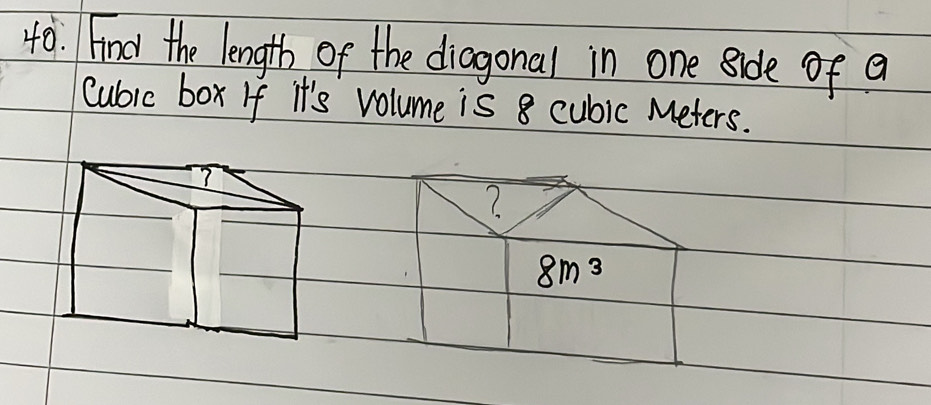 40. Find the length of the diagonal in one side of a
Cubic box If it's volume is 8 cubic Meters.
?
?
8m³